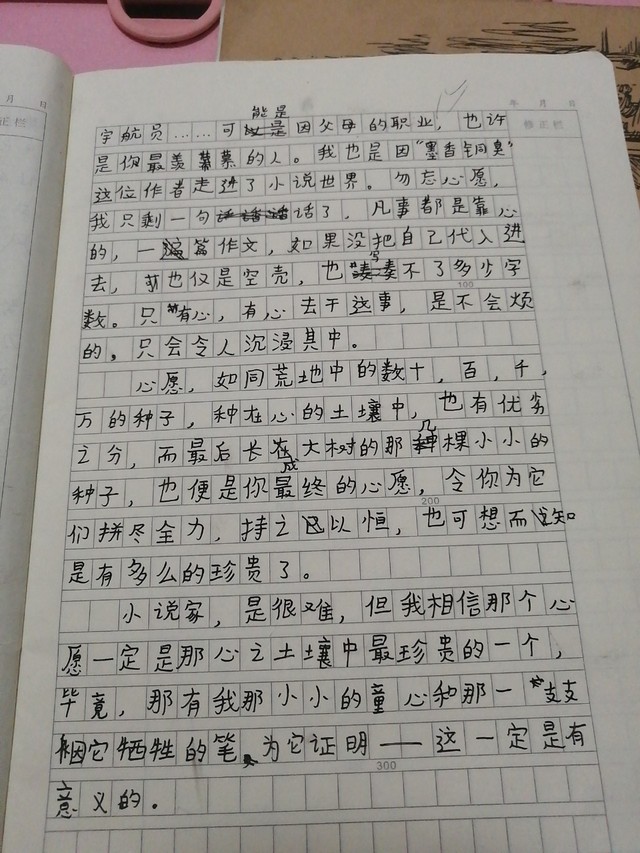 年 月 日
修正栏
月 日
正栏
宇航员……可能是因父母的职业，也许
是你最羡慕的人。我也是因“墨香铜臭”
这位作者走进了小说世界。勿忘心愿，
我只剩一句话了，凡事都是靠心
的，一篇作文，如果没把自己代入进
去，也仅是空壳，也写不了多少字
100
数。只有心，有心去干这事，是不会烦
的，只会令人沉浸其中。
心愿，如同荒地中的数十，百，千，
万的种子，种在心的土壤中，也有优劣
之分，而最后长成大树的那几棵小小的
种子，也便是你最终的心愿，令你为它
200
们拼尽全力，持之以恒，也可想而知
是有多么的珍贵了。
小说家，是很难，但我相信那个心
愿一定是那心之土壤中最珍贵的一个，
毕竟，那有我那小小的童心和那一支支
因它牺牲的笔，为它证明——这一定是有
300
意义的。